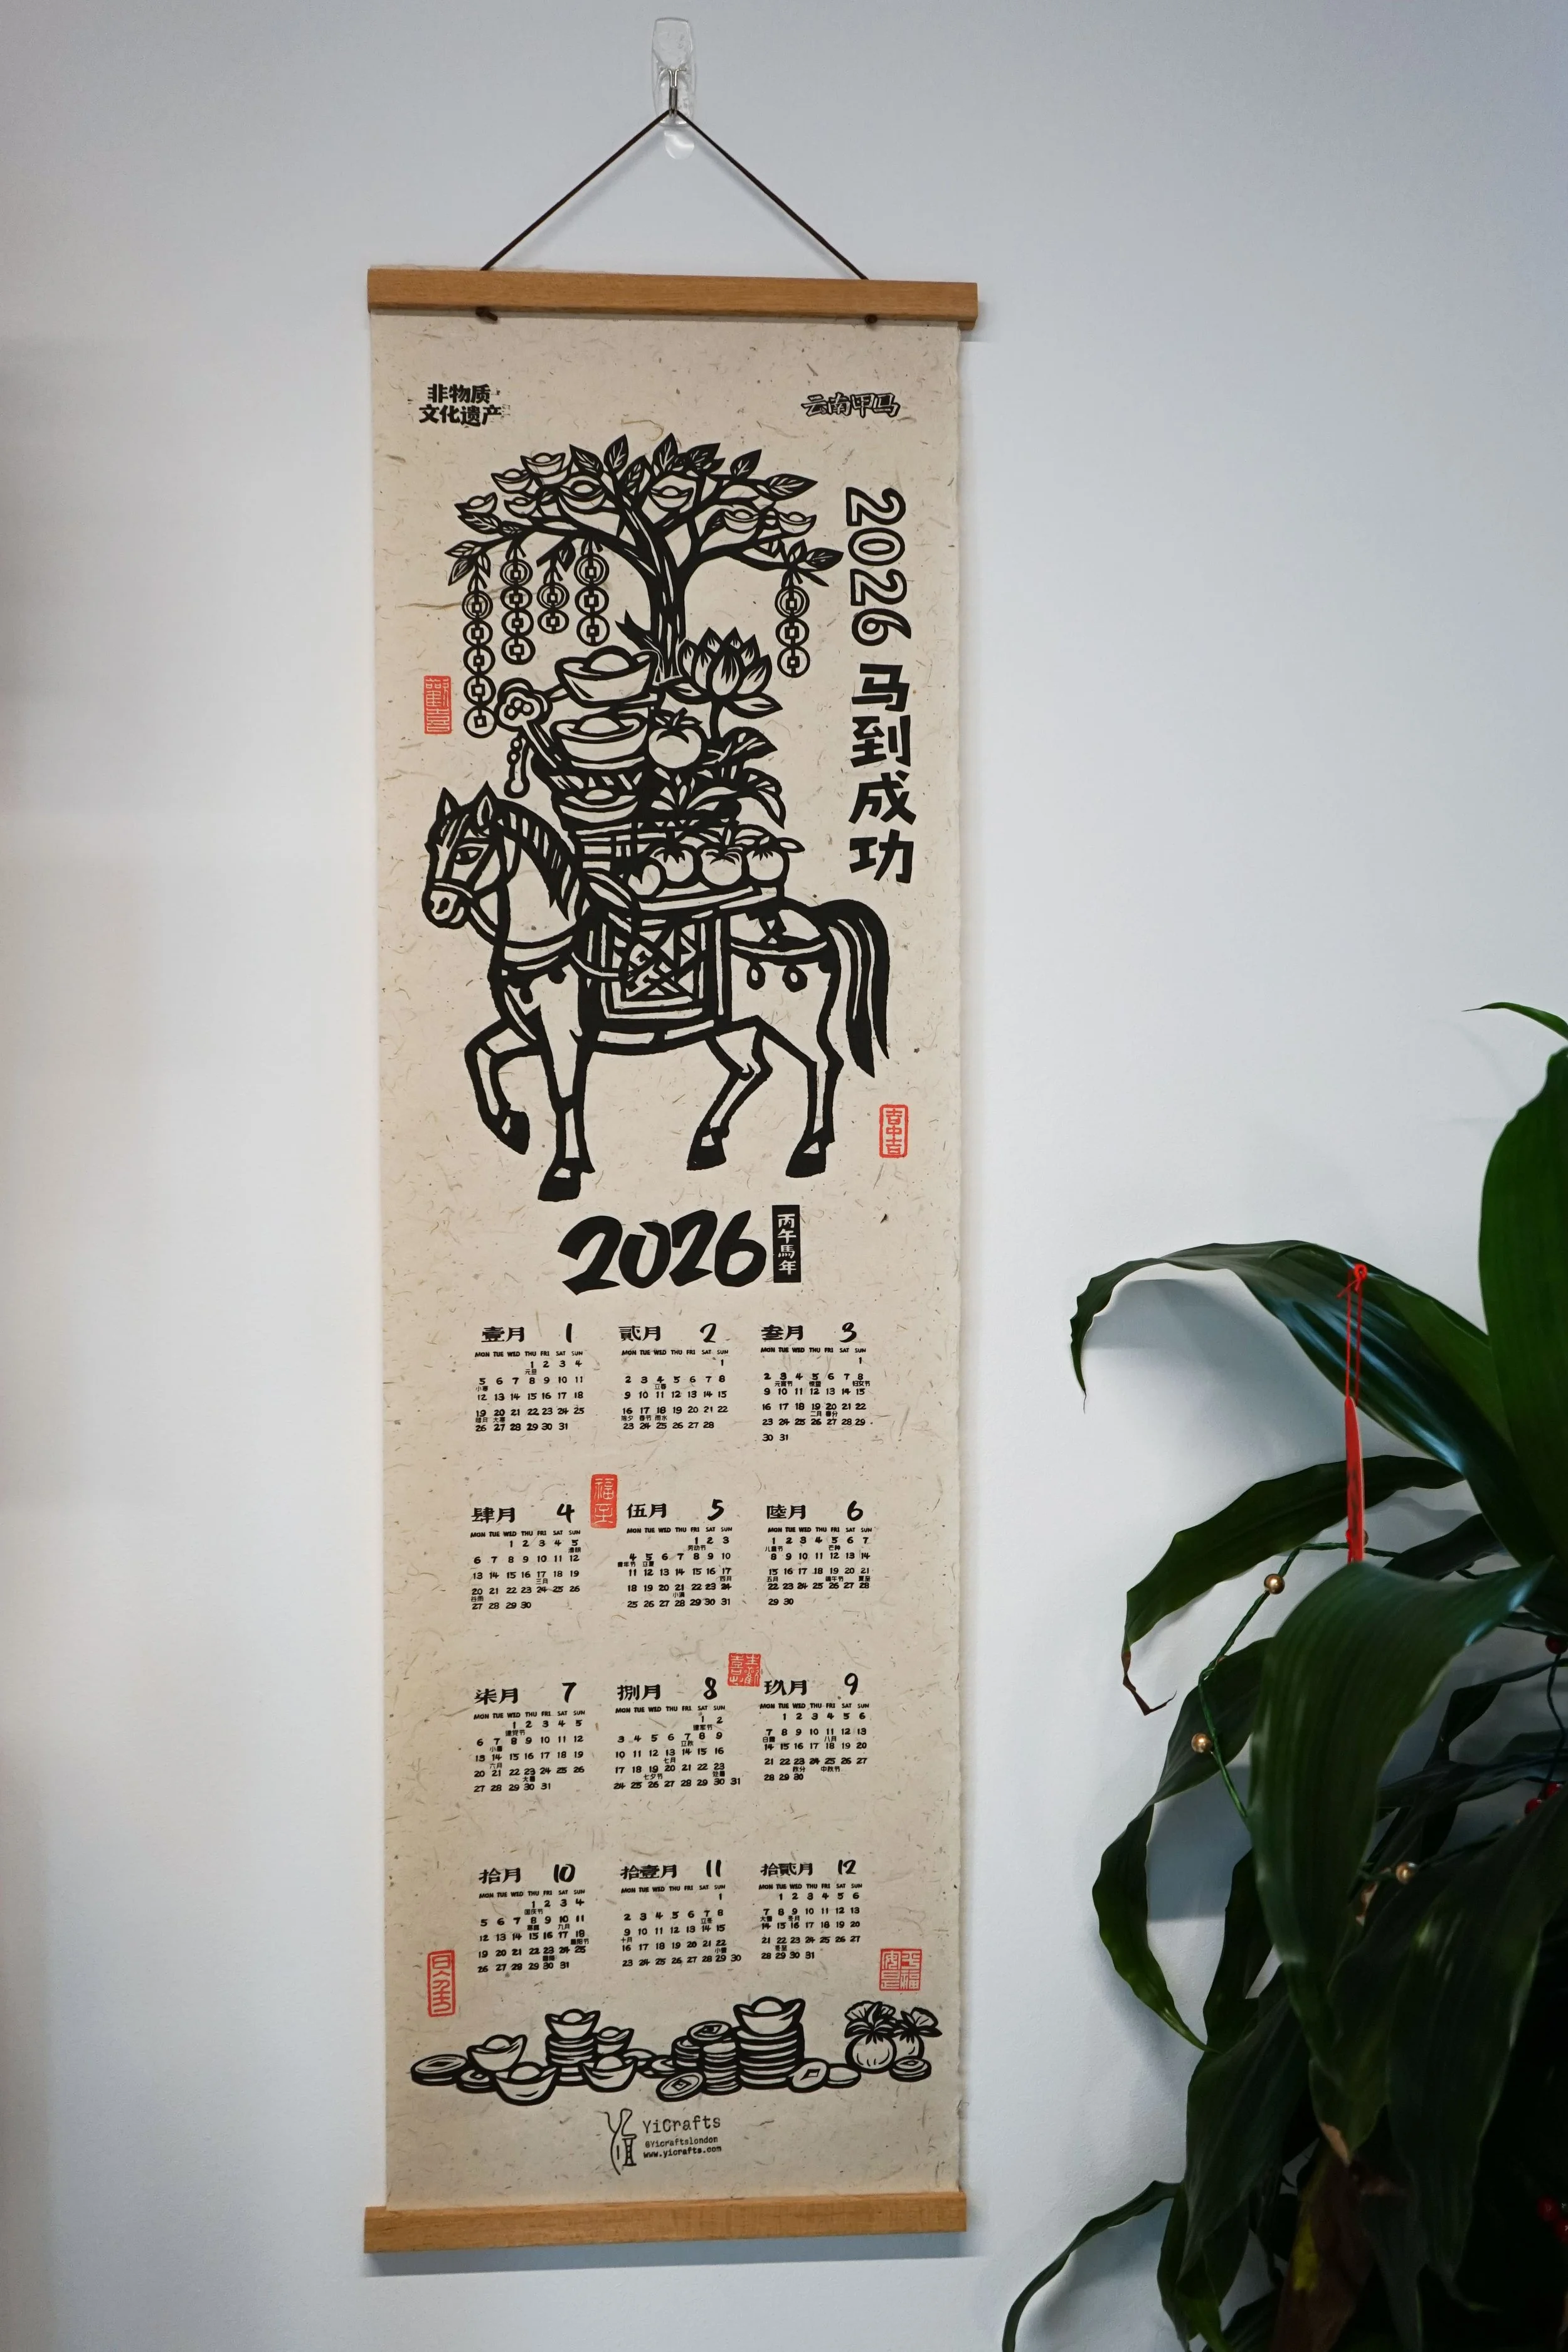 非物质
文化遗产
云南甲马
2026 马到成功
歡喜
吉中吉
2026
丙午馬年
壹月 1
MON TUE WED THU FRI SAT SUN
1 2 3 4
元旦
5 6 7 8 9 10 11
小寒
12 13 14 15 16 17 18
19 20 21 22 23 24 25
腊月 大寒
26 27 28 29 30 31
贰月 2
MON TUE WED THU FRI SAT SUN
1
2 3 4 5 6 7 8
立春
9 10 11 12 13 14 15
16 17 18 19 20 21 22
除夕 春节 雨水
23 24 25 26 27 28
叁月 3
MON TUE WED THU FRI SAT SUN
1
2 3 4 5 6 7 8
元宵节 惊蛰 妇女节
9 10 11 12 13 14 15
16 17 18 19 20 21 22
二月 春分
23 24 25 26 27 28 29
30 31
肆月 4
MON TUE WED THU FRI SAT SUN
1 2 3 4 5
清明
6 7 8 9 10 11 12
13 14 15 16 17 18 19
三月
20 21 22 23 24 25 26
谷雨
27 28 29 30
福至
伍月 5
MON TUE WED THU FRI SAT SUN
1 2 3
劳动节
4 5 6 7 8 9 10
青年节 立夏
11 12 13 14 15 16 17
四月
18 19 20 21 22 23 24
小满
25 26 27 28 29 30 31
陆月 6
MON TUE WED THU FRI SAT SUN
1 2 3 4 5 6 7
儿童节 芒种
8 9 10 11 12 13 14
15 16 17 18 19 20 21
五月 端午节 夏至
22 23 24 25 26 27 28
29 30
柒月 7
MON TUE WED THU FRI SAT SUN
1 2 3 4 5
建党节
6 7 8 9 10 11 12
小暑
13 14 15 16 17 18 19
六月
20 21 22 23 24 25 26
大暑
27 28 29 30 31
捌月 8
MON TUE WED THU FRI SAT SUN
1 2
建军节
3 4 5 6 7 8 9
立秋
10 11 12 13 14 15 16
七月
17 18 19 20 21 22 23
七夕节 处暑
24 25 26 27 28 29 30 31
玖月 9
MON TUE WED THU FRI SAT SUN
1 2 3 4 5 6
7 8 9 10 11 12 13
白露 八月
14 15 16 17 18 19 20
21 22 23 24 25 26 27
秋分 中秋节
28 29 30
拾月 10
MON TUE WED THU FRI SAT SUN
1 2 3 4
国庆节
5 6 7 8 9 10 11
寒露 九月
12 13 14 15 16 17 18
重阳节
19 20 21 22 23 24 25
霜降
26 27 28 29 30 31
拾壹月 11
MON TUE WED THU FRI SAT SUN
1
2 3 4 5 6 7 8
立冬
9 10 11 12 13 14 15
十月
16 17 18 19 20 21 22
小雪
23 24 25 26 27 28 29 30
拾贰月 12
MON TUE WED THU FRI SAT SUN
1 2 3 4 5 6
7 8 9 10 11 12 13
大雪 冬月
14 15 16 17 18 19 20
21 22 23 24 25 26 27
冬至
28 29 30 31
平安是福
YiCrafts
@Yicraftslondon
www.yicrafts.com